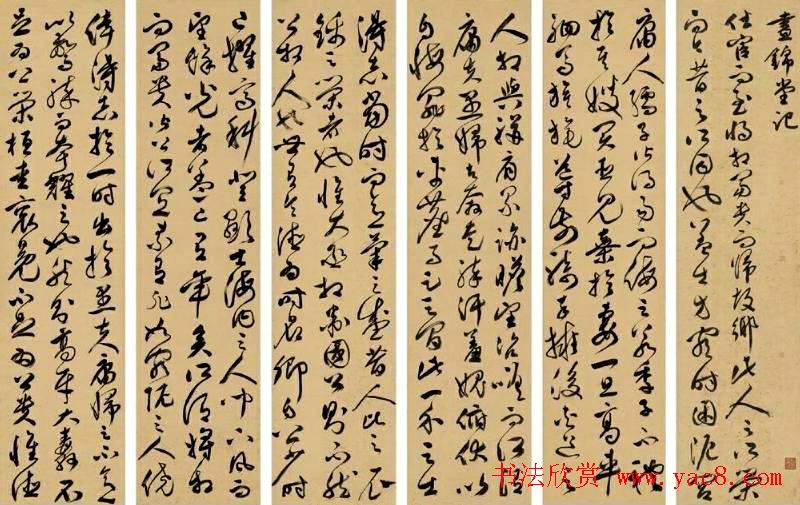 晝錦堂記
仕宦而至將相富貴而歸故鄉此人之所榮
而今昔之所同也蓋士方窮時困阨
庸人孺子皆得易而侮之若季子不禮
於其嫂買臣見棄於妻一旦高車
駟馬旗旄導前騎卒擁後夾道之
人相與駢肩累迹瞻望咨嗟而所謂
庸夫愚婦者奔走駭汗羞愧俯伏以
自悔罪於車塵馬足之間此一介之士
得志當時而意氣之盛昔人比之衣
錦之榮者也惟大丞相國公則不然
公相人也世有令德為時名卿自公少時
已擢高科登顯士海內之人聞下風而
望餘光者蓋亦有年矣所謂將相
而富貴皆公所宜素有非如窮阨之人僥
倖得志於一時出於愚夫庸婦之不意
以驚駭而夸耀之也然則高牙大纛不
足為公榮桓圭袞冕不足為公貴惟德
书法欣赏
www.yac8.com